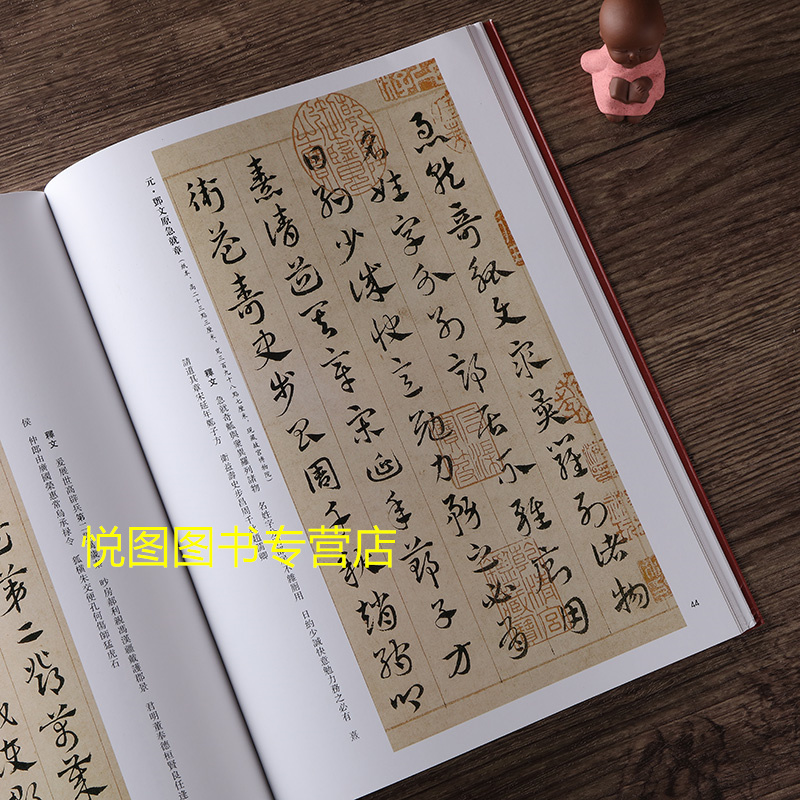 急就奇觚與衆異羅列諸物
名姓字分別部居不雜廁用
日約少誠快意勉力務之必有
憙請道其章宋延年鄭子方
衛益壽史步昌周千秋趙孺卿
元·鄧文原急就章（紙本，高二十三點三厘米，寬三百九十八點七厘米，現藏故宮博物院）
釋文 急就奇觚與衆異羅列諸物 名姓字 不雜廁用 日約少誠快意勉力務之必有 憙
請道其章宋延年鄭子方 衛益壽史步昌周千
44
第二鄧萬歲
釋文 爰展世高辟兵第二 秒房郝利親馮漢疆戴護郡景 君明董奉德桓賢良任逢
侯 仲郎由廣國榮惠常烏承祿令 狐橫朱交便孔何傷師猛虎石
悦图图书专营店